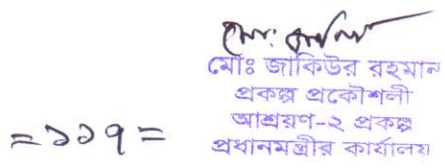 মোঃ জাকিউর রহমান
প্রকল্প প্রকৌশলী
আশ্রয়ণ-২ প্রকল্প
প্রধানমন্ত্রীর কার্যালয়
=১১৭=